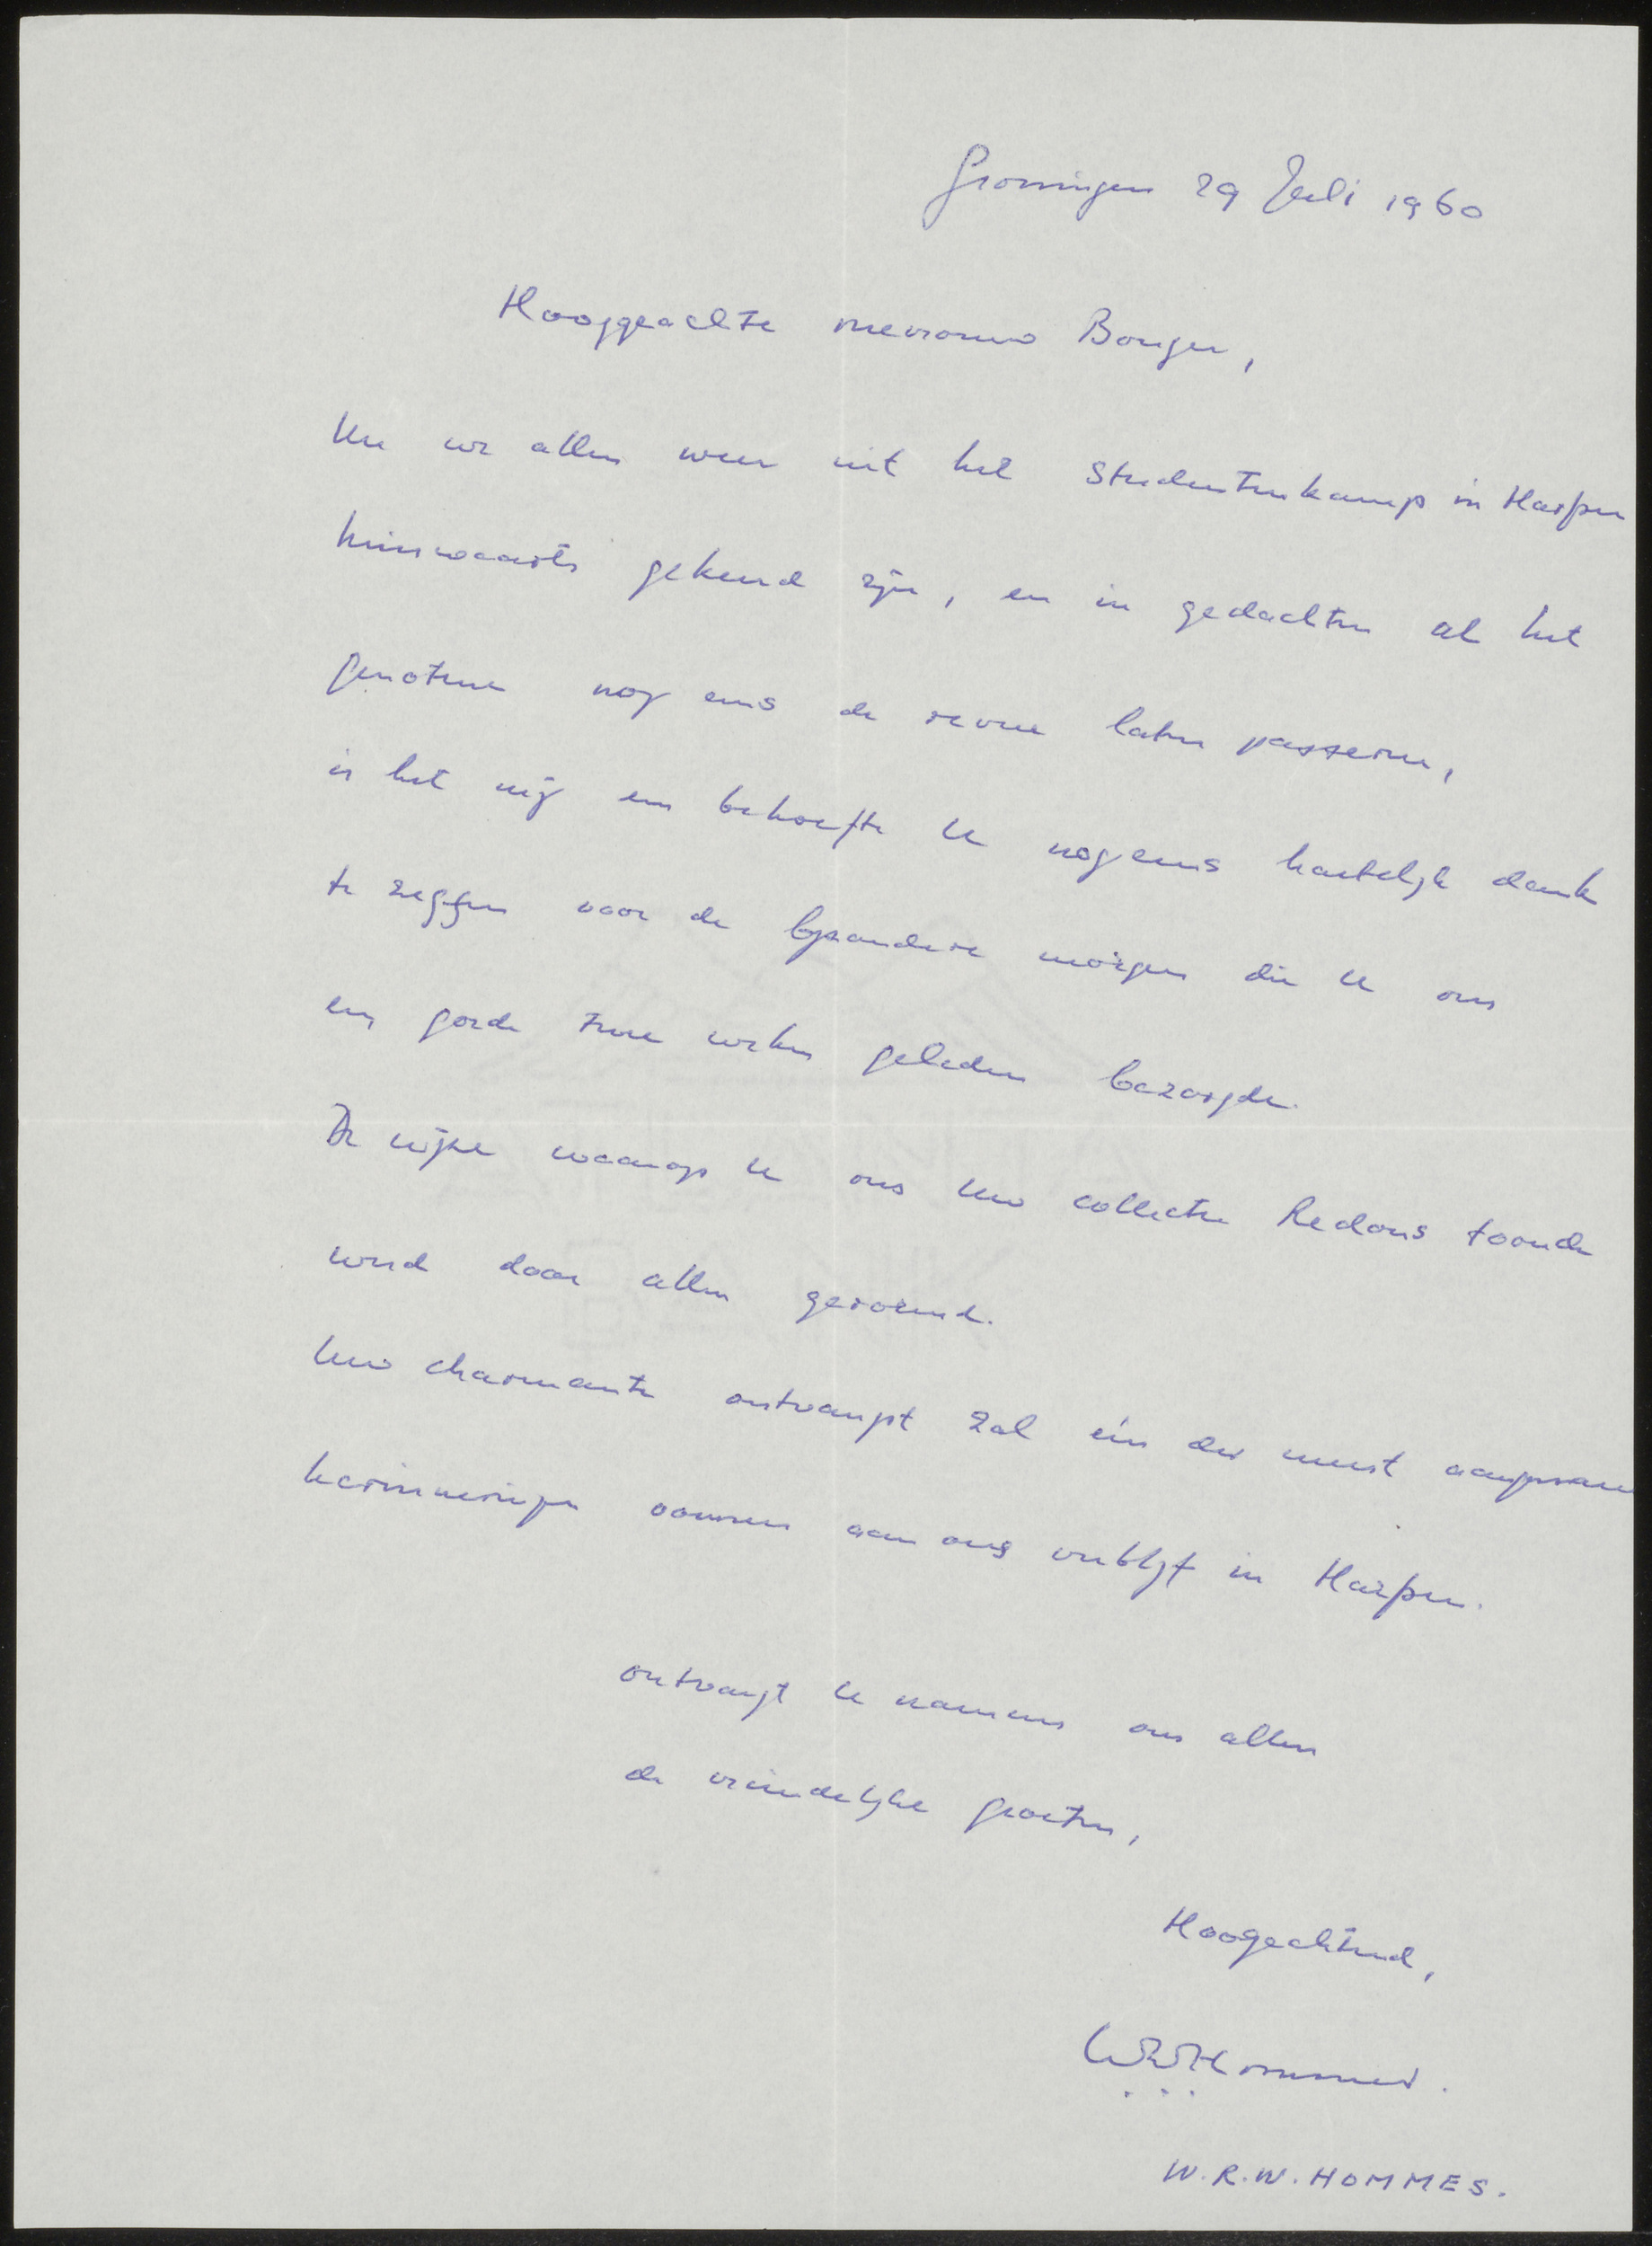 Groningen 29 Juli 1960
Hooggeachte mevrouw Bonger,
Nu we allen weer uit het Studentenkamp in Harfsen
huiswaarts gekeerd zijn, en in gedachten al het
genotene nog eens de revue laten passeren,
is het mij een behoefte U nog eens hartelijk dank
te zeggen voor de bijzondere morgen die U ons
een goede twee weken geleden bezorgde.
De wijze waarop U ons Uw collectie Redons toonde
werd door allen geroemd.
Uw charmante ontvangst zal één der meest aangename
herinneringen vormen aan ons verblijf in Harfsen.
Ontvangt U namens ons allen
de vriendelijke groeten,
Hoogachtend,
WRWHommes.
W.R.W. HOMMES.